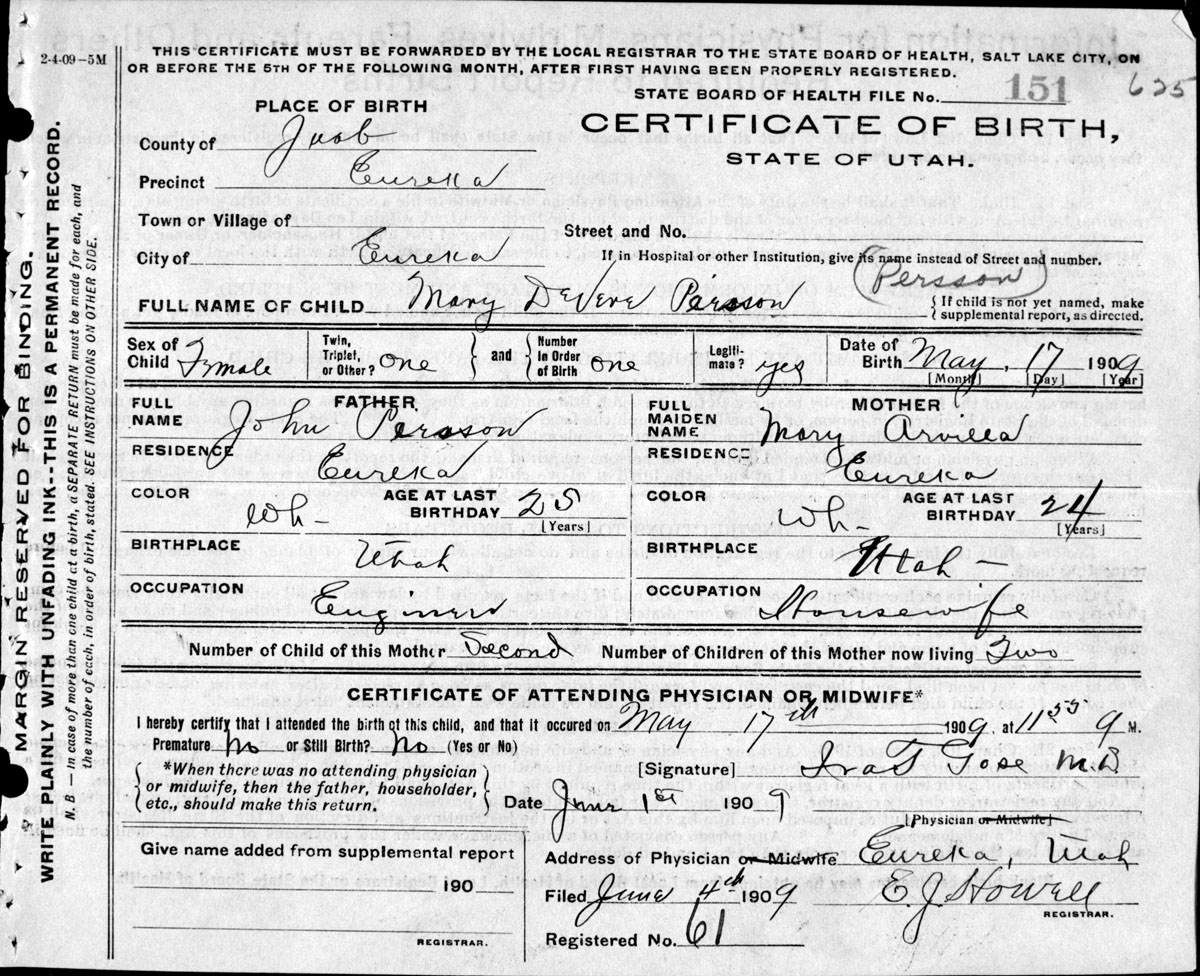 2-4-09-5M
THIS CERTIFICATE MUST BE FORWARDED BY THE LOCAL REGISTRAR TO THE STATE BOARD OF HEALTH, SALT LAKE CITY, ON
OR BEFORE THE 5TH OF THE FOLLOWING MONTH, AFTER FIRST HAVING BEEN PROPERLY REGISTERED.
625
STATE BOARD OF HEALTH FILE No. 151
PLACE OF BIRTH
CERTIFICATE OF BIRTH,
STATE OF UTAH.
County of Juab
Precinct Eureka
Town or Village of
Street and No.
City of Eureka
If in Hospital or other Institution, give its name instead of Street and number.
Persson
FULL NAME OF CHILD Mary DeVere Persson
{If child is not yet named, make
supplemental report, as directed.
Sex of Child Female
Twin, Triplet, or Other? one
and
Number in Order of Birth one
Legiti-mate? yes
Date of Birth May 17 1909
[Month] [Day] [Year]
FATHER
FULL NAME John Persson
RESIDENCE Eureka
COLOR Wh-
AGE AT LAST BIRTHDAY 25
[Years]
BIRTHPLACE Utah
OCCUPATION Engineer
MOTHER
FULL MAIDEN NAME Mary Arvilla
RESIDENCE Eureka
COLOR Wh-
AGE AT LAST BIRTHDAY 24
[Years]
BIRTHPLACE Utah -
OCCUPATION Housewife
Number of Child of this Mother Second Number of Children of this Mother now living Two
CERTIFICATE OF ATTENDING PHYSICIAN OR MIDWIFE*
I hereby certify that I attended the birth of this child, and that it occured on May 17th 1909, at 1153 M.
Premature No or Still Birth? No (Yes or No)
{*When there was no attending physician
or midwife, then the father, householder,
etc., should make this return.}
[Signature] M.D.
Date June 1st 1909
[Physician or Midwife]
Give name added from supplemental report
Address of Physician or Midwife Eureka, Utah
190
Filed June 4th 1909 E. J. Howell
REGISTRAR.
REGISTRAR.
Registered No. 61
MARGIN RESERVED FOR BINDING.
WRITE PLAINLY WITH UNFADING INK--THIS IS A PERMANENT RECORD.
N. B.—In case of more than one child at a birth, a SEPARATE RETURN must be made for each, and
the number of each, in order of birth, stated. SEE INSTRUCTIONS ON OTHER SIDE.